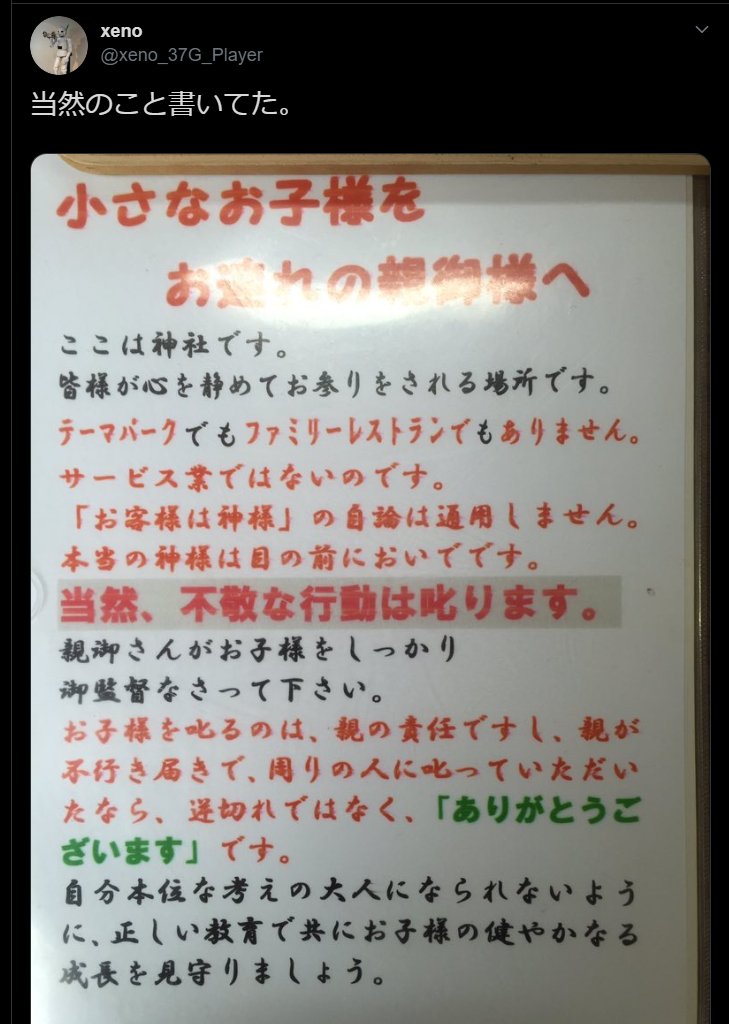 xeno
@xeno_37G_Player
当然のこと書いてた。
小さなお子様を
お連れの親御様へ
ここは神社です。
皆様が心を静めてお参りをされる場所です。
テーマパークでもファミリーレストランでもありません。
サービス業ではないのです。
「お客様は神様」の自論は通用しません。
本当の神様は目の前においでです。
当然、不敬な行動は叱ります。
親御さんがお子様をしっかり
御監督なさって下さい。
お子様を叱るのは、親の責任ですし、親が
不行き届きで、周りの人に叱っていただい
たなら、逆切れではなく、「ありがとうご
ざいます」です。
自分本位な考えの大人になられないよう
に、正しい教育で共にお子様の健やかなる
成長を見守りましょう。